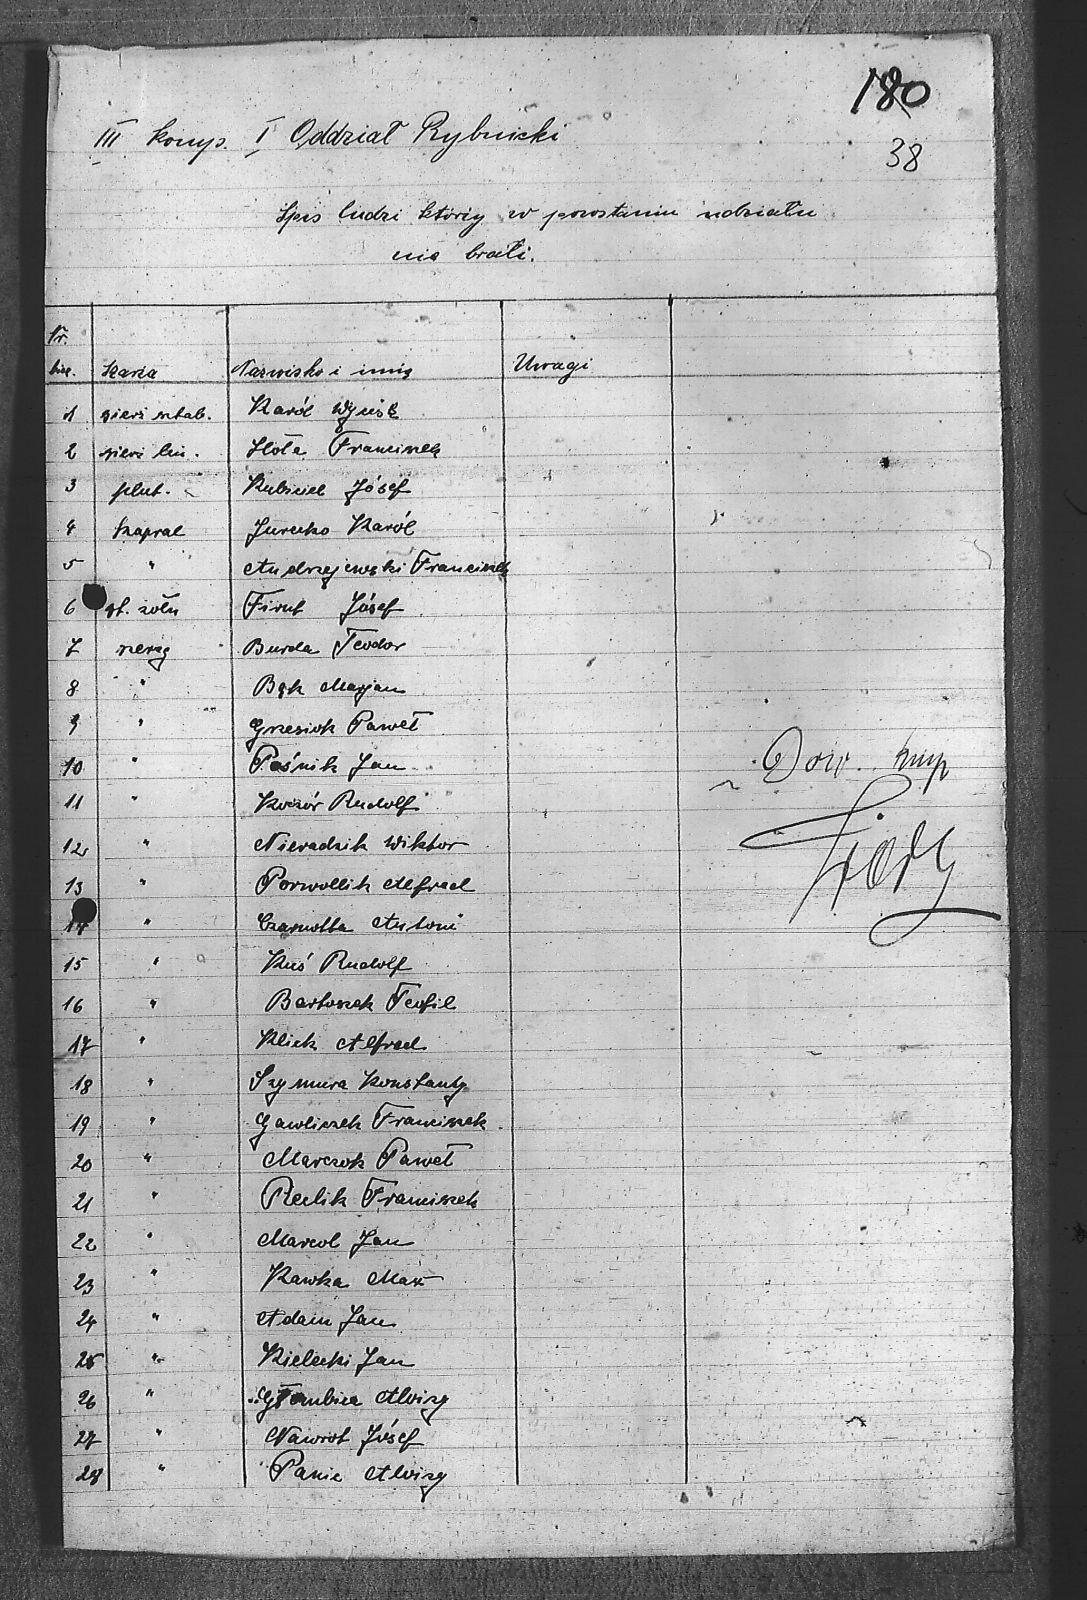 180
38
III komp. I Oddział Rybnicki
Spis ludzi którzy w powstaniu udziału
nie brali.
Nr. bież. Szarża Nazwisko i imię Uwagi
1 sierż sztab. Karól
2 sierż lin. Franciszek
3 plut. Kubiciel Józef
4 kapral Jureczko Karól
5 " Andrzejewski Franciszek
6 st. żołn Firut Józef
7 szereg Burda Teodor
8 " Bąk Marjan
9 " Grzesiok Paweł
10 " Paśnik Jan
11 " Koczór Rudolf
12 " Nieradzik Wiktor
13 " Porwollik Alfred
14 " Czarnotta Antoni
15 " Kuś Rudolf
16 " Bartoszek Teofil
17 " Klick Alfred
18 " Szymura Konstanty
19 " Gawliczek Franciszek
20 " Marczok Paweł
21 " Reclik Franciszek
22 " Marcol Jan
23 " Kawka Max
24 " Adam Jan
25 " Kielecki Jan
26 " Głombica Alojzy
27 " Nawrot Józef
28 " Panic Alojzy
Dow. kmp